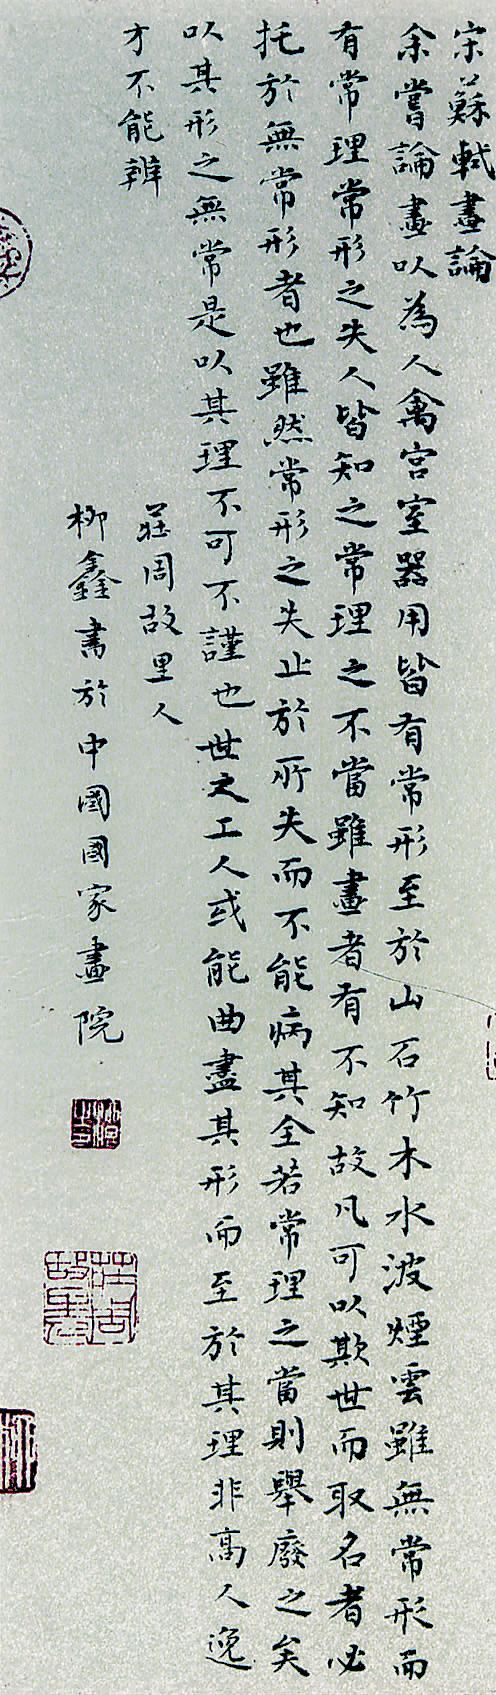 宋蘇軾畫論
余嘗論畫以為人禽宮室器用皆有常形至於山石竹木水波煙雲雖無常形而
有常理常形之失人皆知之常理之不當雖畫者有不知故凡可以欺世而取名者必
托於無常形者也雖然常形之失止於所失而不能病其全若常理之當則舉廢之矣
以其形之無常是以其理不可不謹也世之工人或能曲盡其形而至於其理非高人逸
才不能辨
莊周故里人
柳鑫書於中國國家畫院
莊周
故里人